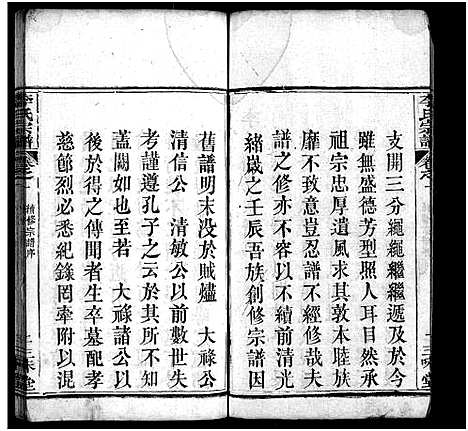 支開三分繩繩繼繼遞及於今
雖無盛德芳型照人耳目然承
祖宗忠厚遺風求其敦本睦族
靡不誼豈忍譜不經修哉弟
譜之修亦不容以不續前光
緒歲之壬辰吾族創修宗譜因
舊譜明末没於賊燼 大祿公
清信公 清敏公以前數世失
考謹遵孔子之云於其所不知
蓋闕如也至若 大祿諸公以
後於得之傳聞者生卒墓配孝
慈節烈必悉紀錄罔牽附以混
李氏宗譜
卷之一
續修宗譜序
二
三味堂
李氏宗譜
卷之一
三味堂